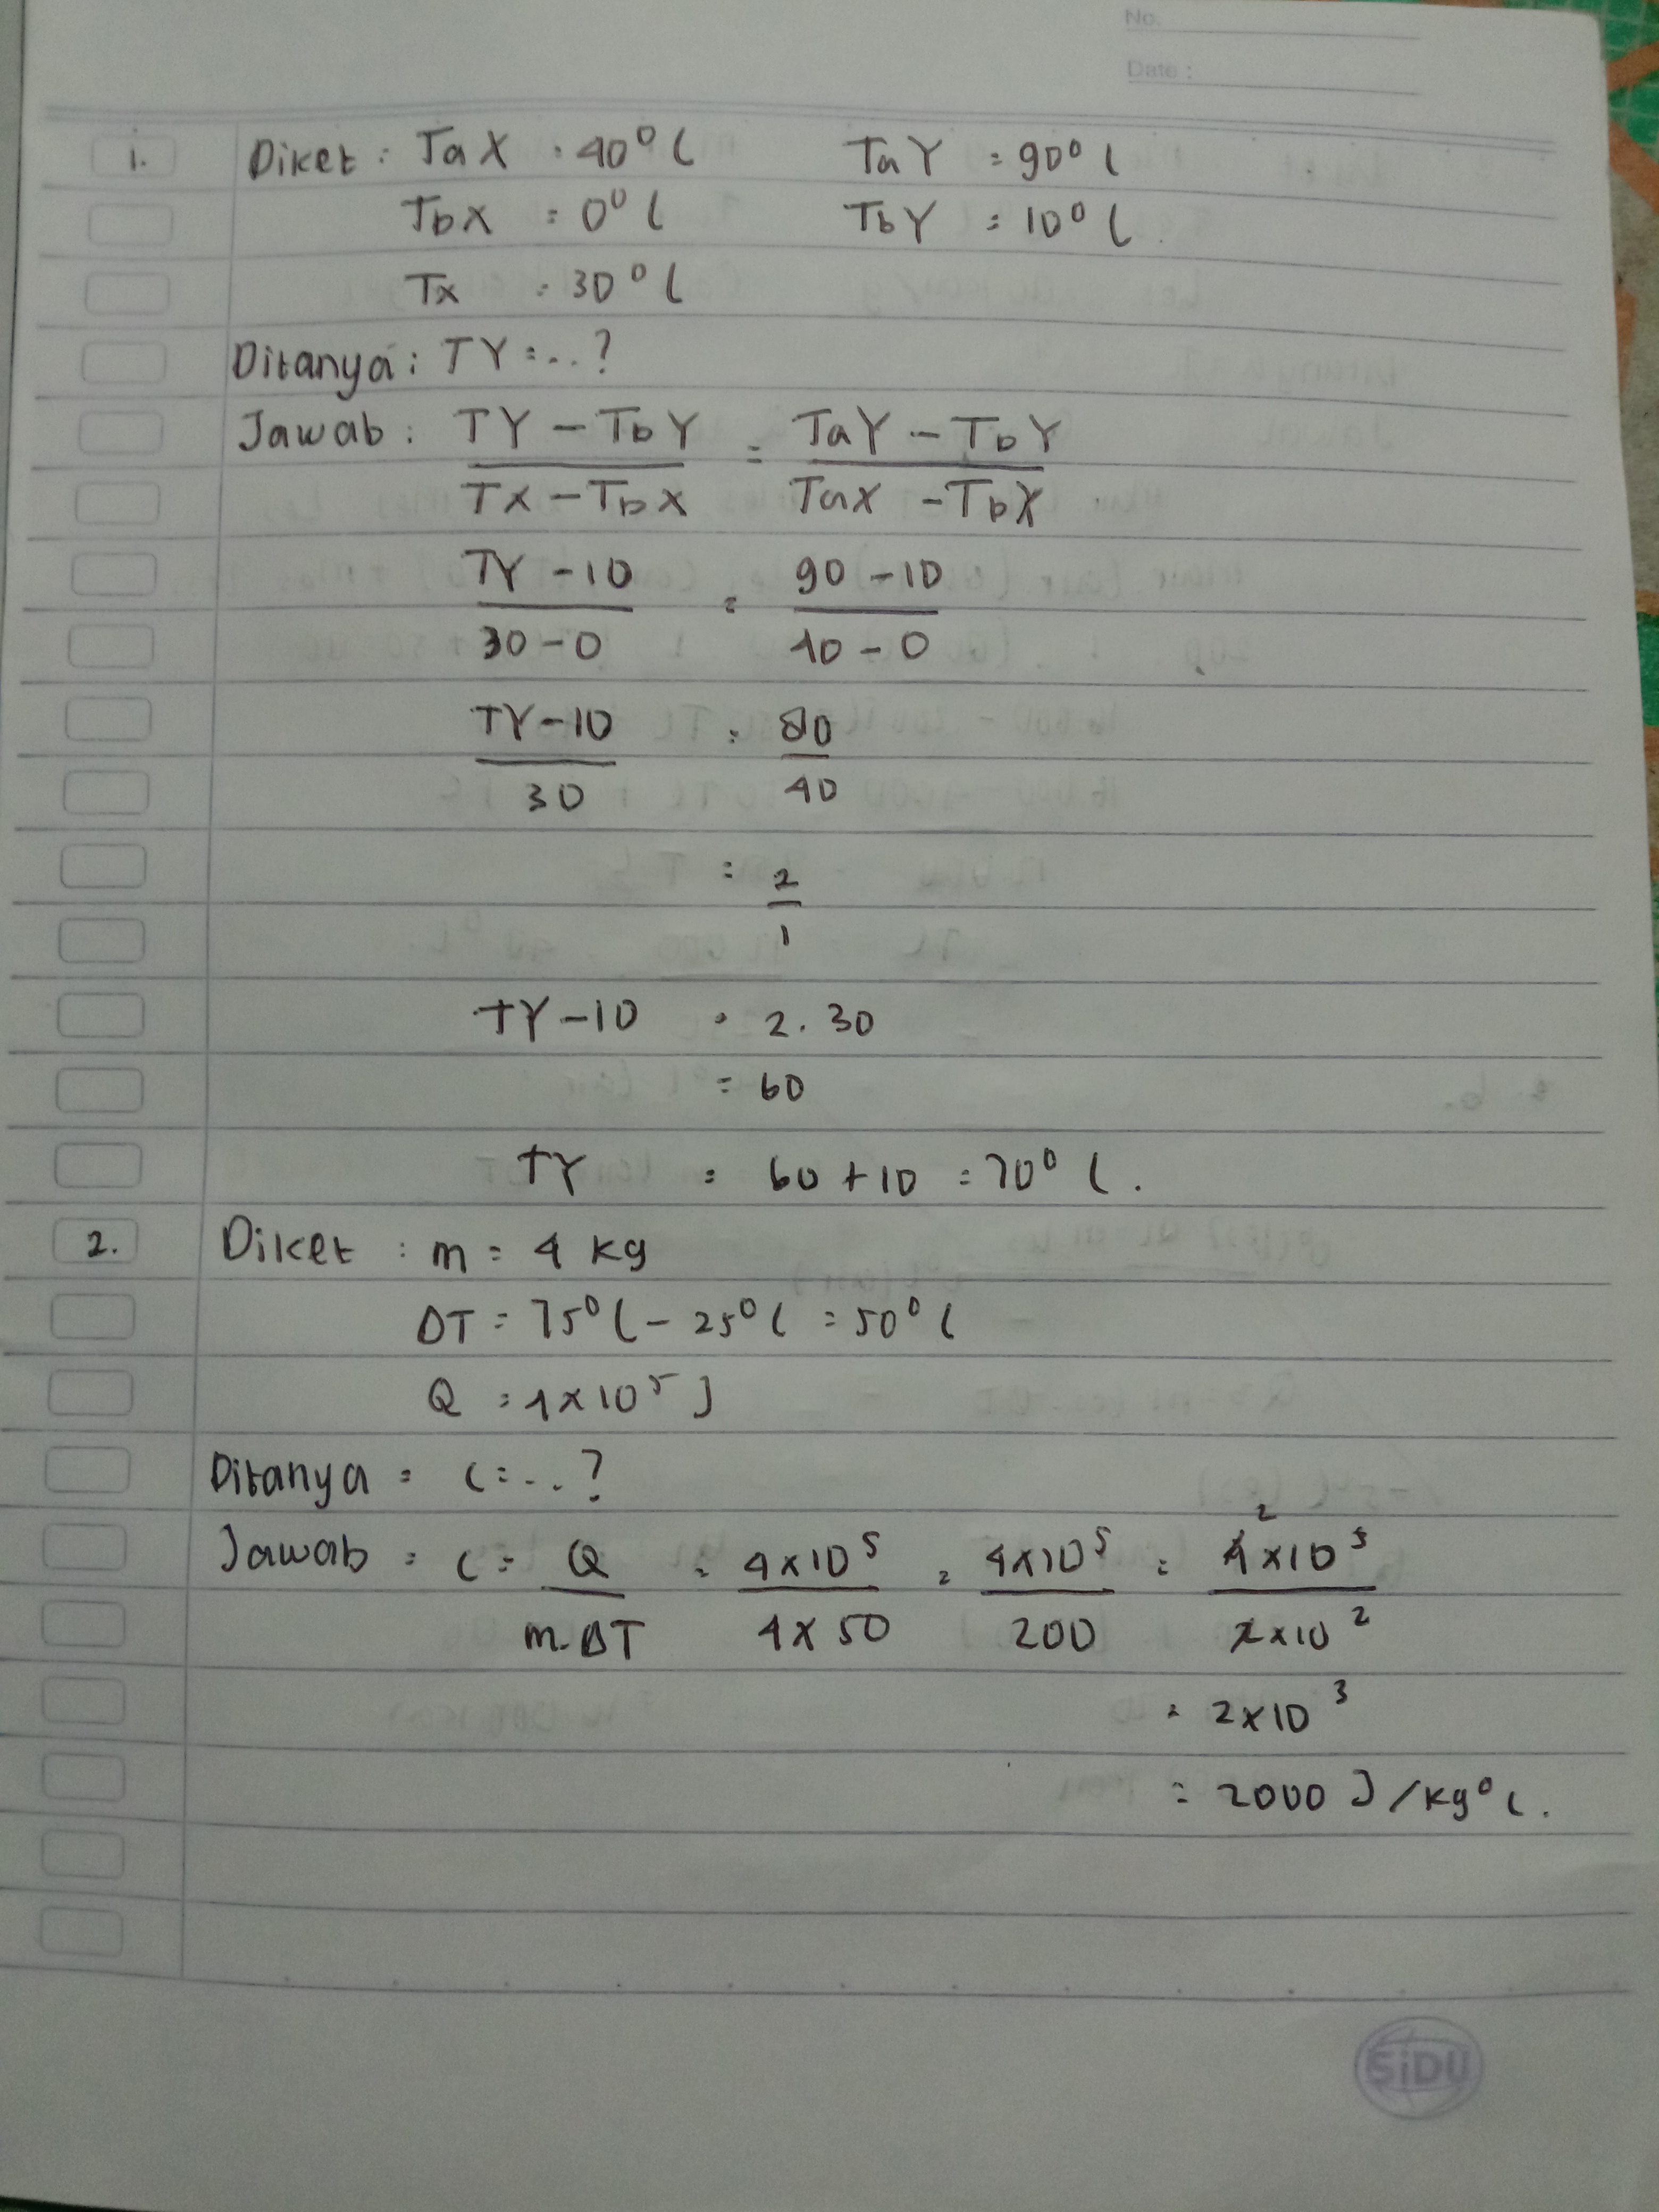 No.
Date :
1. Diket : TaX : 40°C TaY = 90°C
TbX = 0°C TbY = 10°C
Tx : 30°C
Ditanya : TY = ..?
Jawab : TY – TbY = TaY – TbY
TX – TbX TaX – TbX
TY – 10 = 90 – 10
30 – 0 40 – 0
TY – 10 : 80
30 40
: 2
1
TY – 10 = 2.30
= 60
TY = 60 + 10 = 70°C.
2. Diket : m = 4 kg
ΔT = 75°C – 25°C = 50°C
Q = 4×10⁵ J
Ditanya = C = ..?
Jawab = C = Q = 4×10⁵ = 4×10⁵ = 4×10⁵ 2
m.ΔT 4×50 200 2×10²
= 2×10³
= 2000 J/kg°C.
SiDU